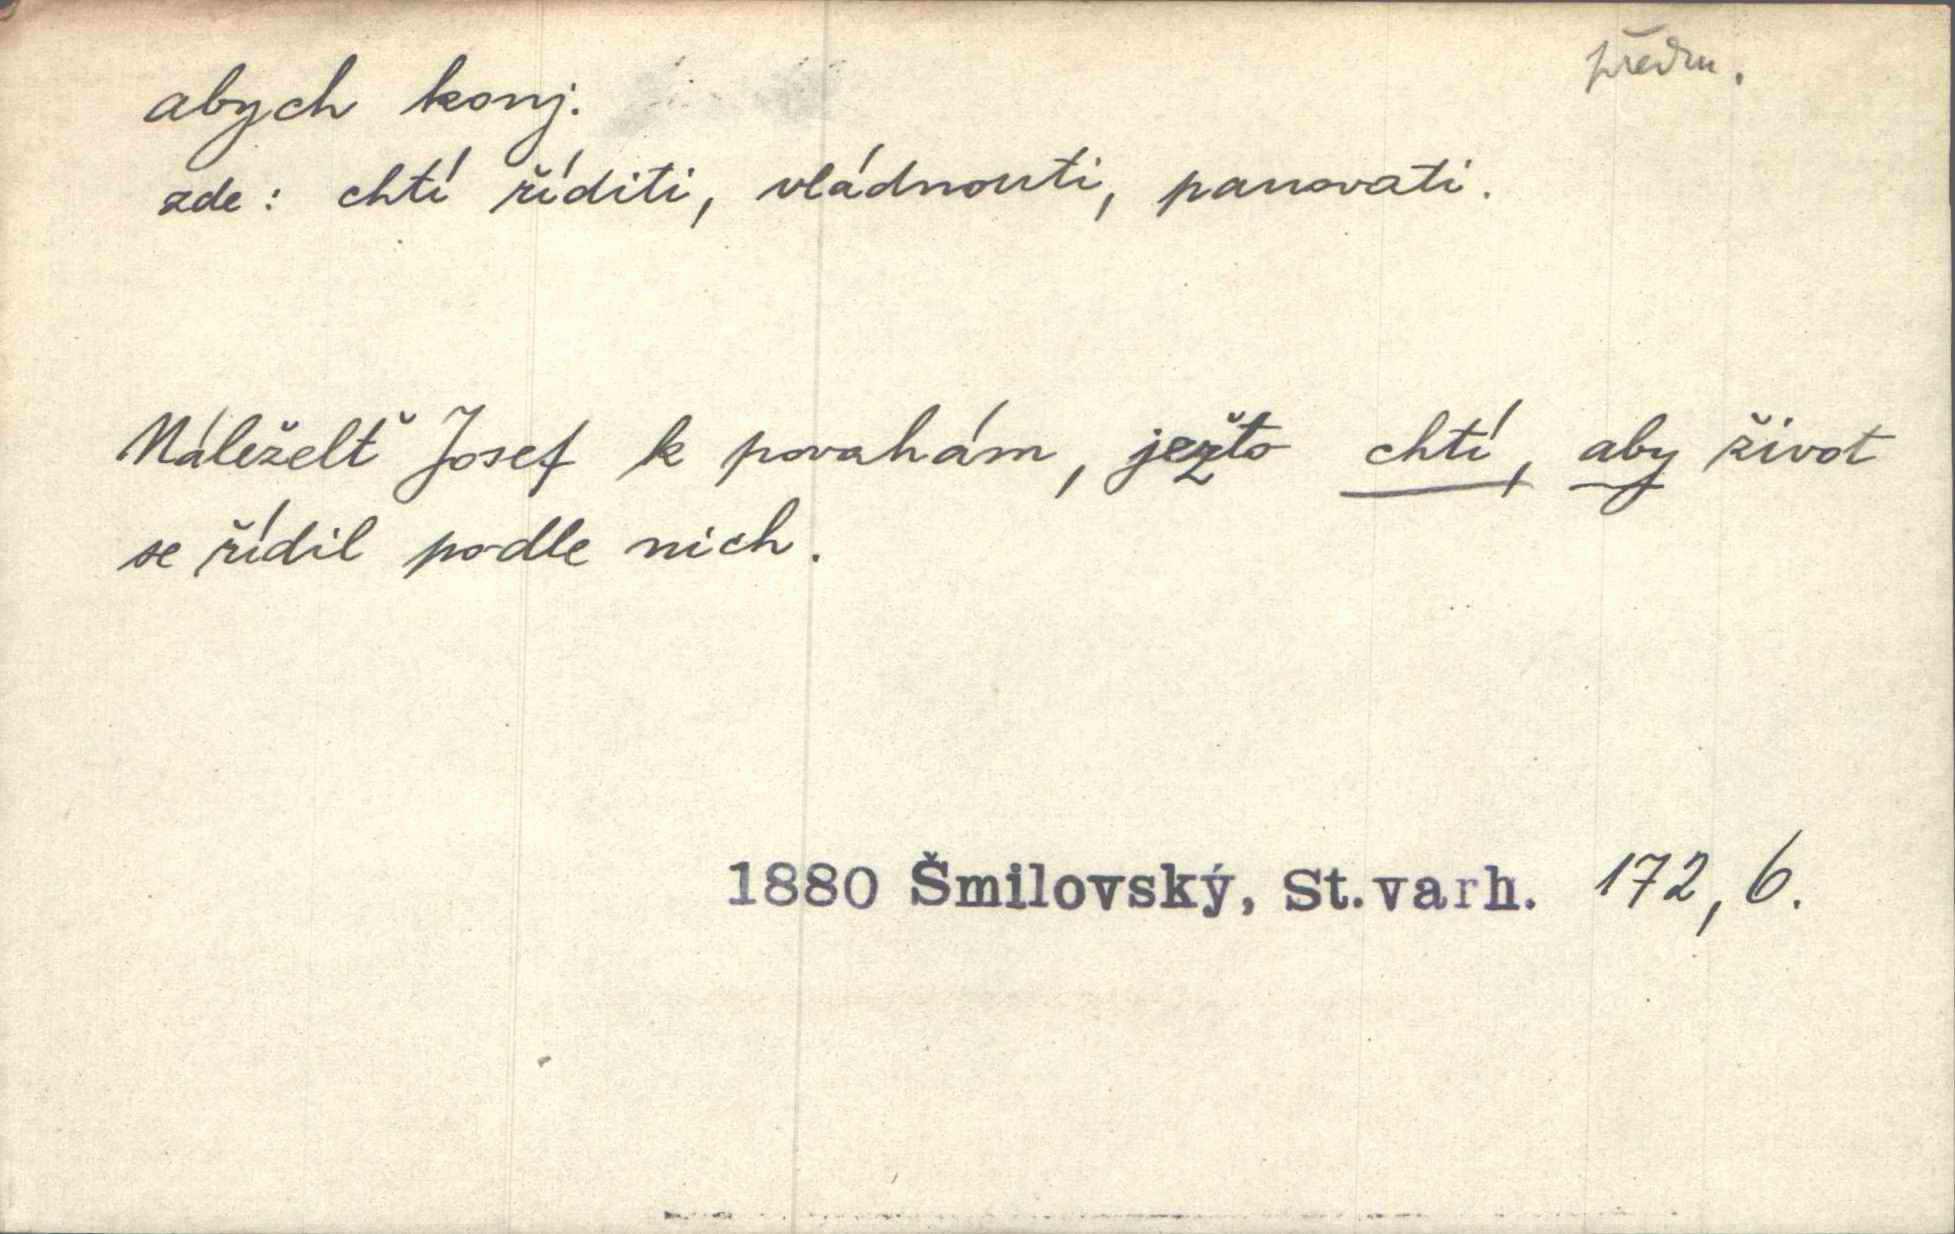 předm.
abych konj.
zde: chtí říditi, vládnouti, panovati.
Náleželť Josef k povahám, ježto chtí, aby život
se řídil podle nich.
1880 Šmilovský, St.varh. 172, 6.